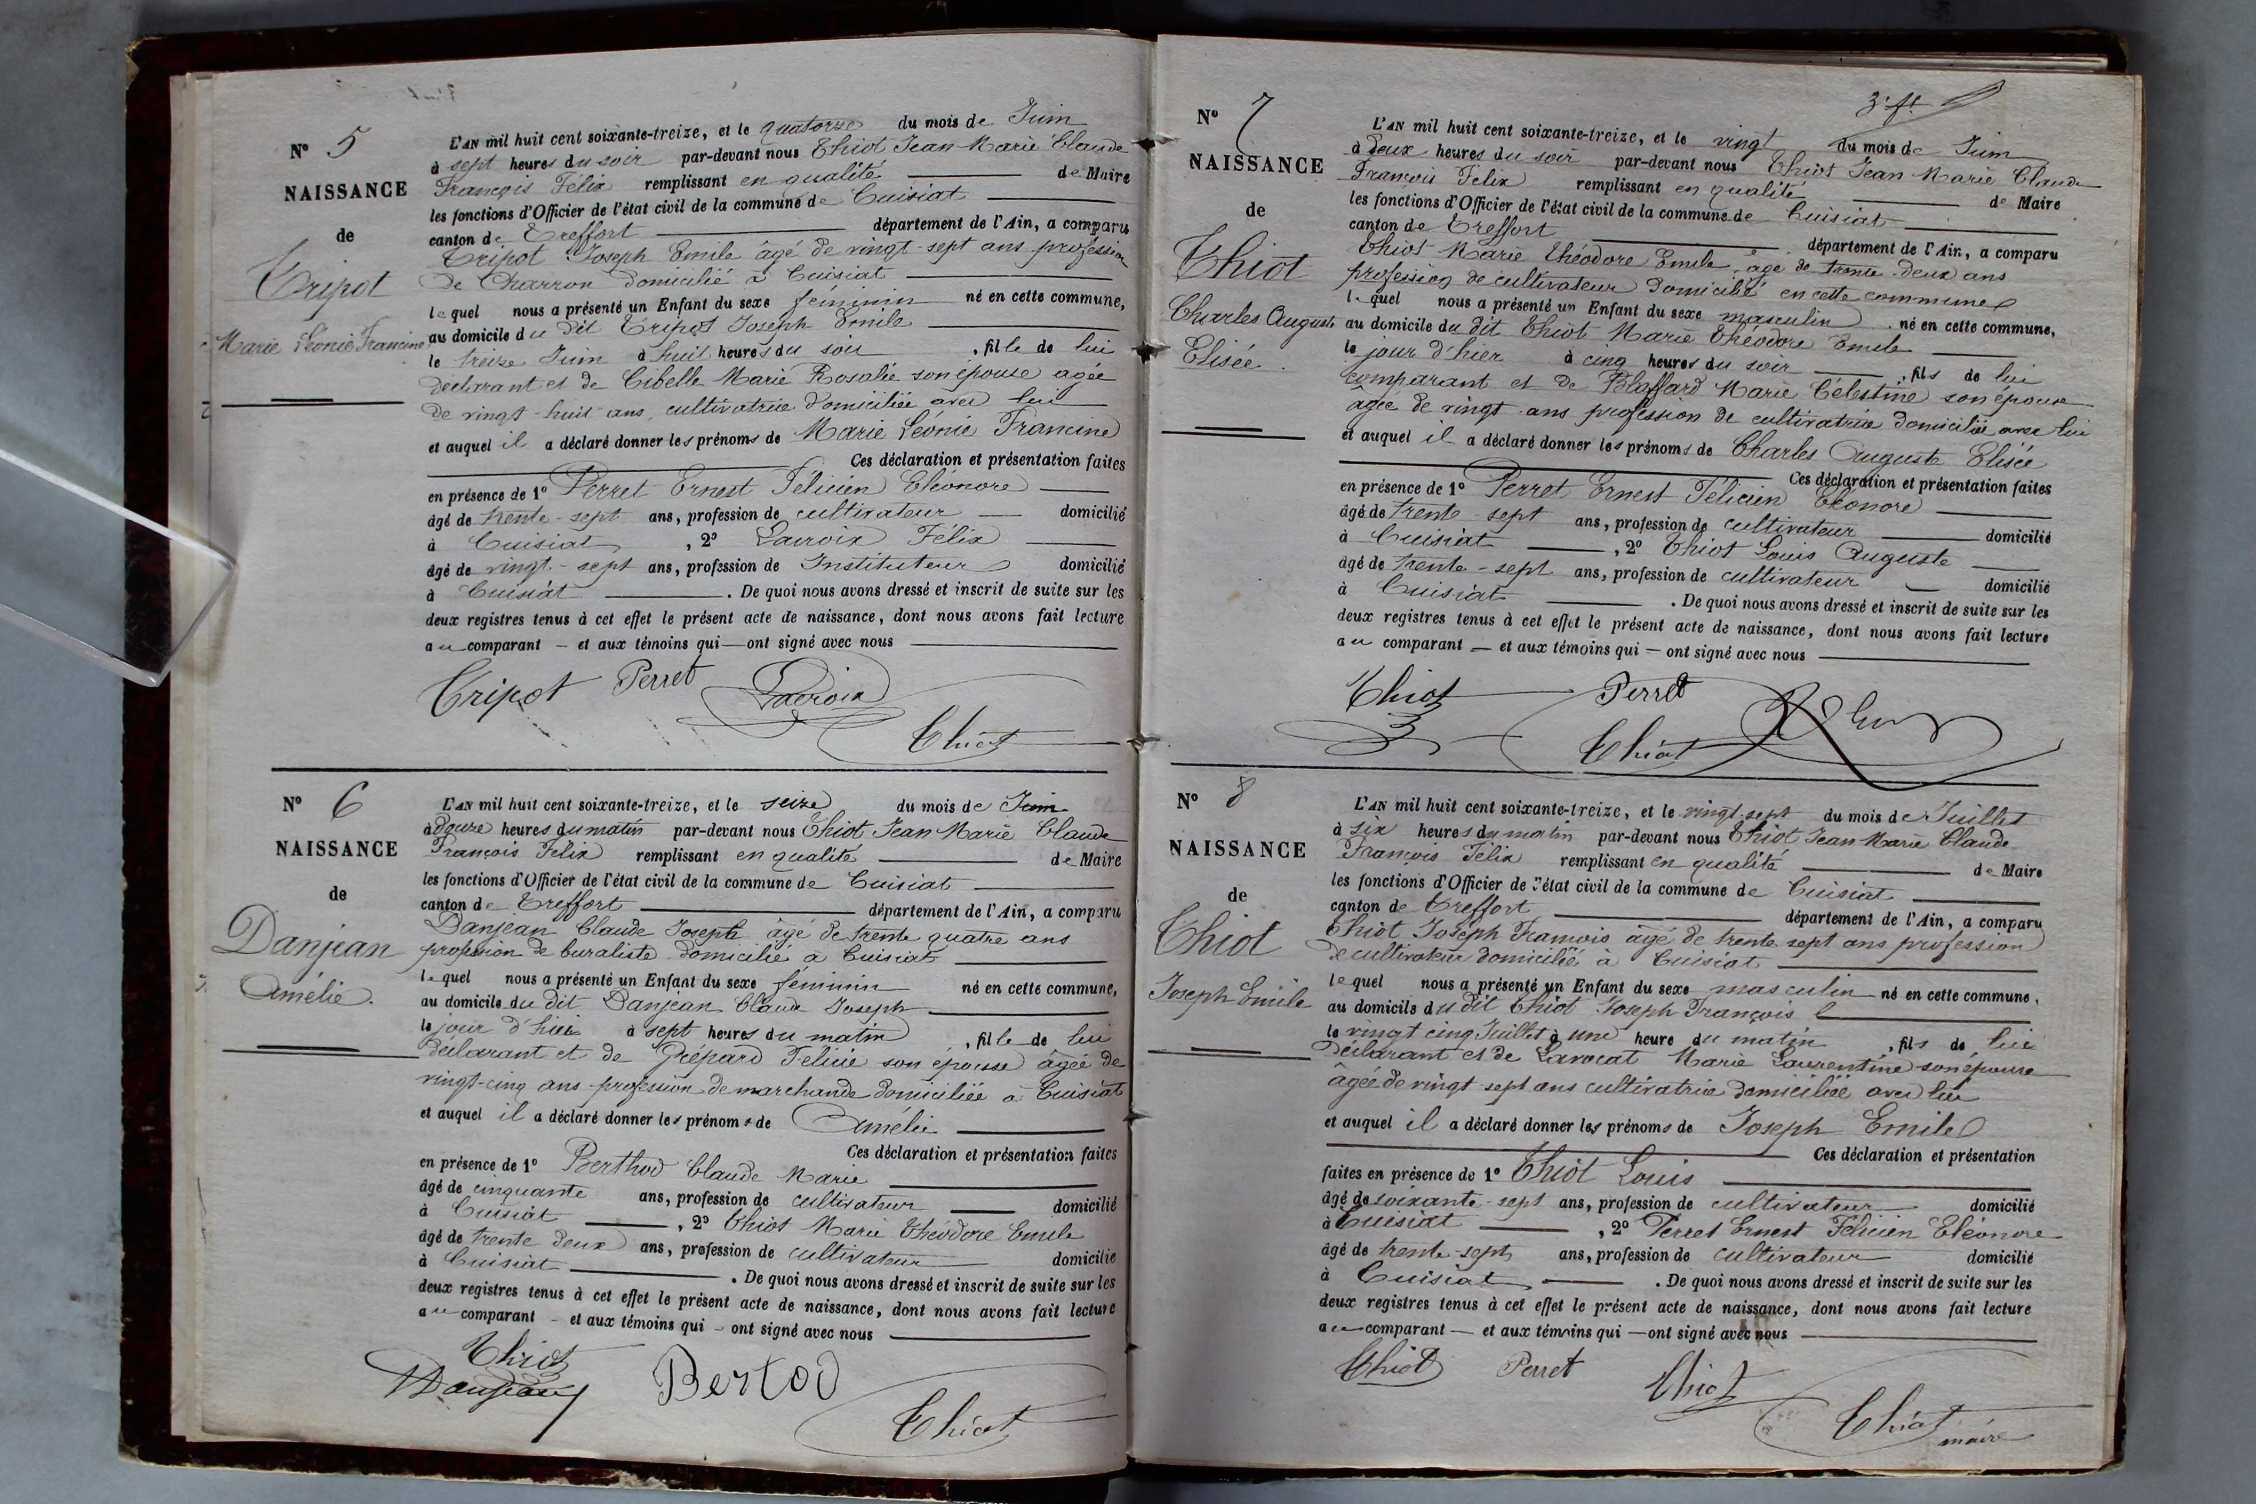 N° 5
NAISSANCE
de
Tripot
Marie Léonie Francine
L'AN mil huit cent soixante-treize, et le quatorze du mois de Juin
à sept heures du soir par-devant nous Thiot Jean Marie Claude
François Félix remplissant en qualité de Maire
les fonctions d'Officier de l'état civil de la commune de Cuisiat
canton de Treffort département de l'Ain, a comparu
Tripot Joseph Emile âgé de vingt-sept ans profession
de Charron domicilié à Cuisiat
lequel nous a présenté un Enfant du sexe féminin né en cette commune,
au domicile du dit Tripot Joseph Emile
le treize Juin à huit heures du soir , fille de lui
déclarant et de Cibelle Marie Rosalie son épouse agée
de vingt-huit ans, cultivatrice domiciliée avec lui
et auquel il a déclaré donner les prénoms de Marie Léonie Francine
Ces déclaration et présentation faites
en présence de 1° Perret Ernest Félicien Eléonore
âgé de trente-sept ans, profession de cultivateur domicilié
à Cuisiat , 2° Lacroix Félix
âgé de vingt-sept ans, profession de Instituteur domicilié
à Cuisiat . De quoi nous avons dressé et inscrit de suite sur les
deux registres tenus à cet effet le présent acte de naissance, dont nous avons fait lecture
au comparant — et aux témoins qui — ont signé avec nous
Tripot Perret Lacroix
Thiot
N° 6
NAISSANCE
de
Danjean
Amélie.
L'AN mil huit cent soixante-treize, et le seize du mois de Juin
à douze heures du matin par-devant nous Thiot Jean Marie Claude
François Félix remplissant en qualité de Maire
les fonctions d'Officier de l'état civil de la commune de Cuisiat
canton de Treffort département de l'Ain, a comparu
Danjean Claude Joseph âgé de trente quatre ans
profession de buraliste domicilié à Cuisiat
lequel nous a présenté un Enfant du sexe féminin né en cette commune,
au domicile du dit Danjean Claude Joseph
le jour d'hier à sept heures du matin , fille de lui
déclarant et de Grépard Félicie son épouse âgée de
vingt-cinq ans profession de marchande domiciliée à Cuisiat
et auquel il a déclaré donner les prénoms de Amélie
Ces déclaration et présentation faites
en présence de 1° Berthod Claude Marie
âgé de cinquante ans, profession de cultivateur domicilié
à Cuisiat , 2° Thiot Marie Théodore Emile
âgé de trente deux ans, profession de cultivateur domicilié
à Cuisiat . De quoi nous avons dressé et inscrit de suite sur les
deux registres tenus à cet effet le présent acte de naissance, dont nous avons fait lecture
au comparant — et aux témoins qui — ont signé avec nous
Thiot
Danjean Bertod
Thiot
3e ft
N° 7
NAISSANCE
de
Thiot
Charles Auguste
Elisée.
L'AN mil huit cent soixante-treize, et le vingt du mois de Juin
à deux heures du soir par-devant nous Thiot Jean Marie Claude
François Félix remplissant en qualité de Maire
les fonctions d'Officier de l'état civil de la commune de Cuisiat
canton de Treffort département de l'Ain, a comparu
Thiot Marie Théodore Emile âgé de trente-deux ans
profession de cultivateur domicilié en cette commune
lequel nous a présenté un Enfant du sexe masculin né en cette commune,
au domicile du dit Thiot Marie Théodore Emile
le jour d'hier à cinq heures du soir , fils de lui
comparant et de Blaffard Marie Célestine son épouse
agée de vingt ans profession de cultivatrice domiciliée avec lui
et auquel il a déclaré donner les prénoms de Charles Auguste Elisée
Ces déclaration et présentation faites
en présence de 1° Perret Ernest Félicien Eléonore
âgé de trente-sept ans, profession de cultivateur domicilié
à Cuisiat , 2° Thiot Louis Auguste
âgé de trente-sept ans, profession de cultivateur domicilié
à Cuisiat . De quoi nous avons dressé et inscrit de suite sur les
deux registres tenus à cet effet le présent acte de naissance, dont nous avons fait lecture
au comparant — et aux témoins qui — ont signé avec nous
Thiot Perret
Thiot
N° 8
NAISSANCE
de
Thiot
Joseph Emile
L'AN mil huit cent soixante-treize, et le vingt-sept du mois de Juillet
à six heures du matin par-devant nous Thiot Jean Marie Claude
François Félix remplissant en qualité de Maire
les fonctions d'Officier de l'état civil de la commune de Cuisiat
canton de Treffort département de l'Ain, a comparu
Thiot Joseph François âgé de trente sept ans profession
de cultivateur domicilié à Cuisiat
lequel nous a présenté un Enfant du sexe masculin né en cette commune,
au domicile du dit Thiot Joseph François
le vingt cinq Juillet à une heure du matin , fils de lui
déclarant et de Lavocat Marie Laurentine son épouse
âgée de vingt sept ans cultivatrice domiciliée avec lui
et auquel il a déclaré donner les prénoms de Joseph Emile
Ces déclaration et présentation
faites en présence de 1° Thiot Louis
âgé de soixante-sept ans, profession de cultivateur domicilié
à Cuisiat , 2° Perret Ernest Félicien Eléonore
âgé de trente-sept ans, profession de cultivateur domicilié
à Cuisiat . De quoi nous avons dressé et inscrit de suite sur les
deux registres tenus à cet effet le présent acte de naissance, dont nous avons fait lecture
au comparant — et aux témoins qui — ont signé avec nous
Thiot Perret Thiot
Thiot
maire